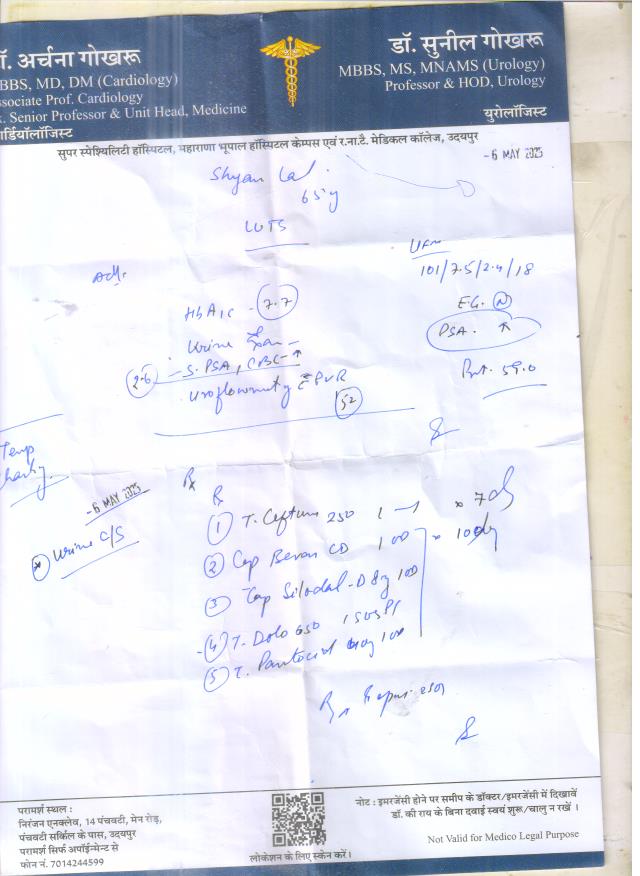 ॉ. अर्चना गोखरू
BBS, MD, DM (Cardiology)
ssociate Prof. Cardiology
x. Senior Professor & Unit Head, Medicine
ार्डियॉलॉजिस्ट
डॉ. सुनील गोखरू
MBBS, MS, MNAMS (Urology)
Professor & HOD, Urology
युरोलॉजिस्ट
सुपर स्पेश्यिलिटी हॉस्पिटल, महाराणा भूपाल हॉस्पिटल केम्पस एवं र.ना.टै. मेडिकल कॉलेज, उदयपुर
-6 MAY 2025
Shyam Lal
65y
LUTS
Adv.
UFM
101/7.5/2.4/18
HbA1c - 7.7
E.G. N
Urine
PSA. ↑
2.6 - S. PSA, CBC - ↑
Uroflowmetry c PVR
52
Prt. 59.0
Temp
Charting
-6 MAY 2025
Urine C/S
Rx
R
1 T. Ceftum 250 1 - 1 x 7d
2 Cap Bevon CD 1 OD x 10dy
3 Cap Silodal-D 8mg 1OD
4 T. Dolo 650 1 SOS
5 T. Pantocid 40mg 1OD
परामर्श स्थल :
निरंजन एनक्लेव, 14 पंचवटी, मेन रोड़,
पंचवटी सर्किल के पास, उदयपुर
परामर्श सिर्फ अपॉईन्मेन्ट से
फोन नं. 7014244599
लोकेशन के लिए स्केन करें।
नोट : इमरजेंसी होने पर समीप के डॉक्टर/इमरजेंसी में दिखावें
डॉ. की राय के बिना दवाई स्वयं शुरू/चालु न रखें ।
Not Valid for Medico Legal Purpose